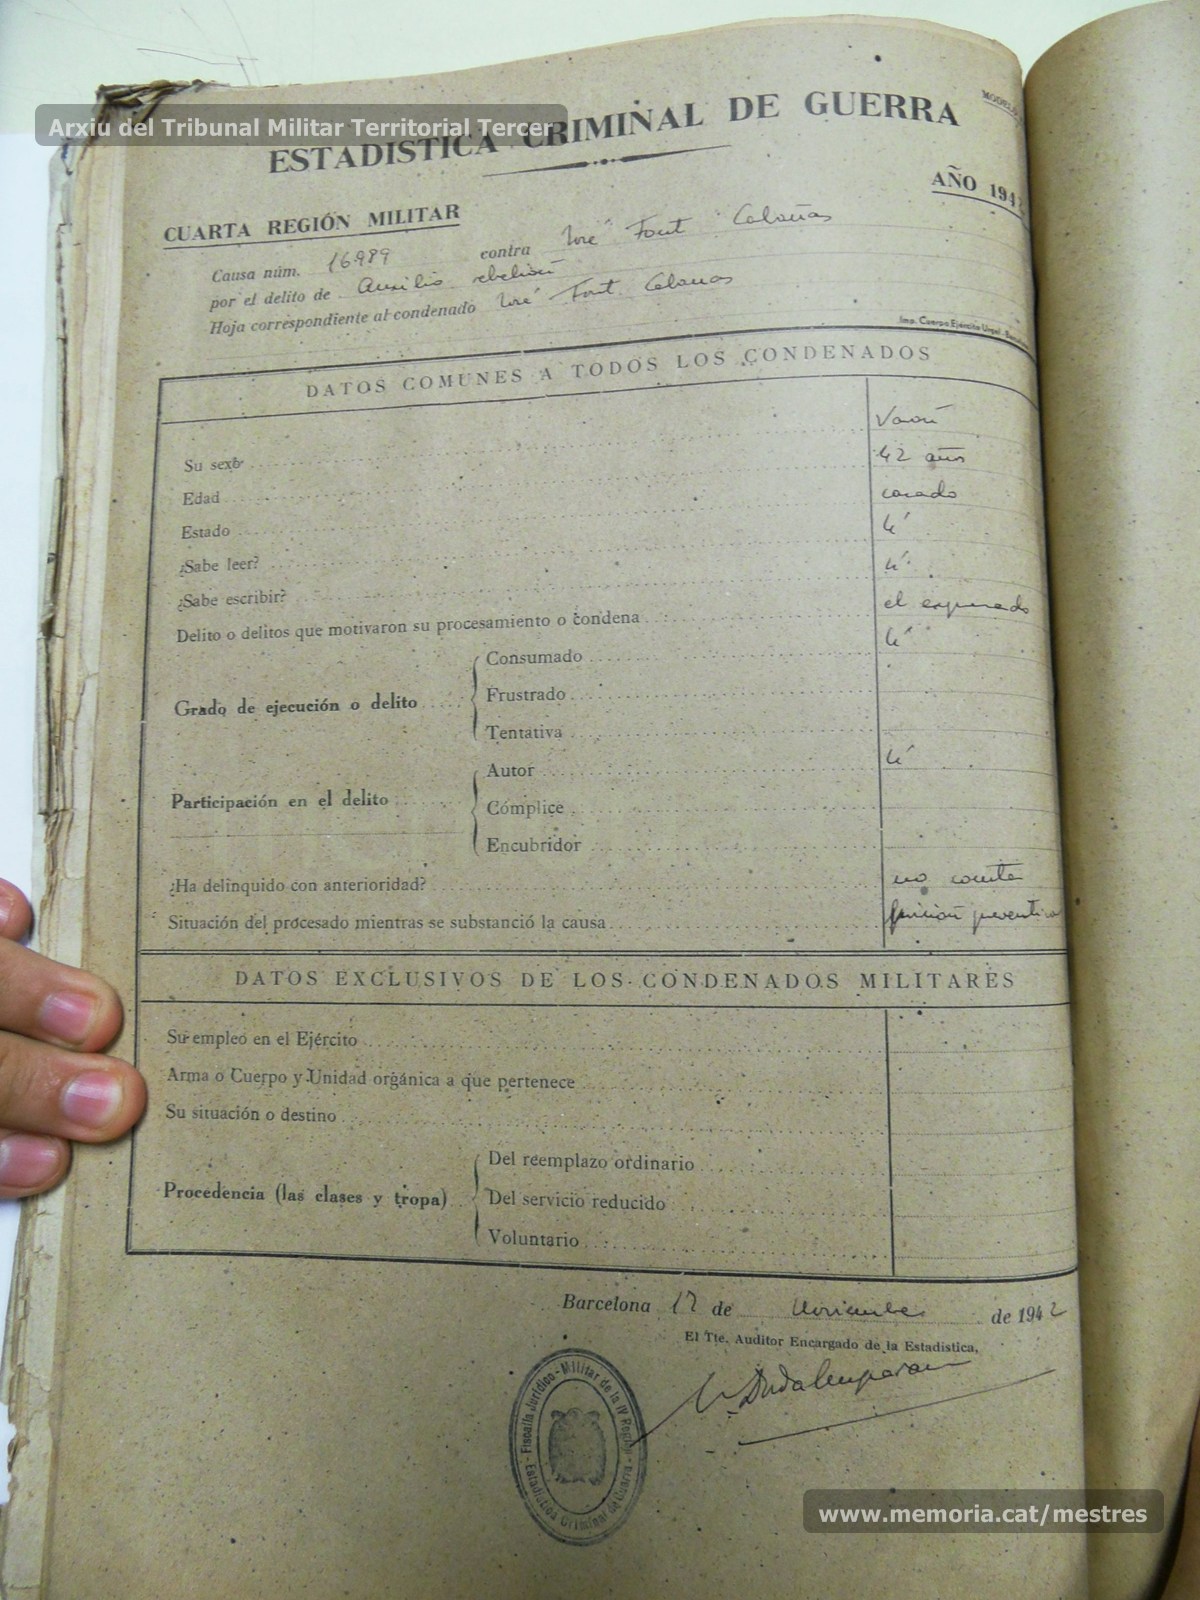 Arxiu del Tribunal Militar Territorial Tercer
MODELO
ESTADISTICA CRIMINAL DE GUERRA
AÑO 1942
CUARTA REGIÓN MILITAR
Causa núm. 16989 contra José Font Cabanas
por el delito de Auxilio rebelion
Hoja correspondiente al condenado José Font Cabanas
Imp. Cuerpo Ejército Urgel.-
DATOS COMUNES A TODOS LOS CONDENADOS
Su sexo Varón
Edad 42 años
Estado casado
¿Sabe leer? si
¿Sabe escribir? si
Delito o delitos que motivaron su procesamiento o condena el expresado
Grado de ejecución o delito
Consumado si
Frustrado
Tentativa
Participación en el delito
Autor si
Cómplice
Encubridor
¿Ha delinquido con anterioridad? no consta
Situación del procesado mientras se substanció la causa prisión preventiva
DATOS EXCLUSIVOS DE LOS CONDENADOS MILITARES
Su empleo en el Ejército
Arma o Cuerpo y Unidad orgánica a que pertenece
Su situación o destino
Procedencia (las clases y tropa)
Del reemplazo ordinario
Del servicio reducido
Voluntario
Barcelona 17 de Noviembre de 1942
El Tte. Auditor Encargado de la Estadística,
Fiscalía Jurídico-Militar de la IV Región
Estadística Criminal de Guerra
www.memoria.cat/mestres